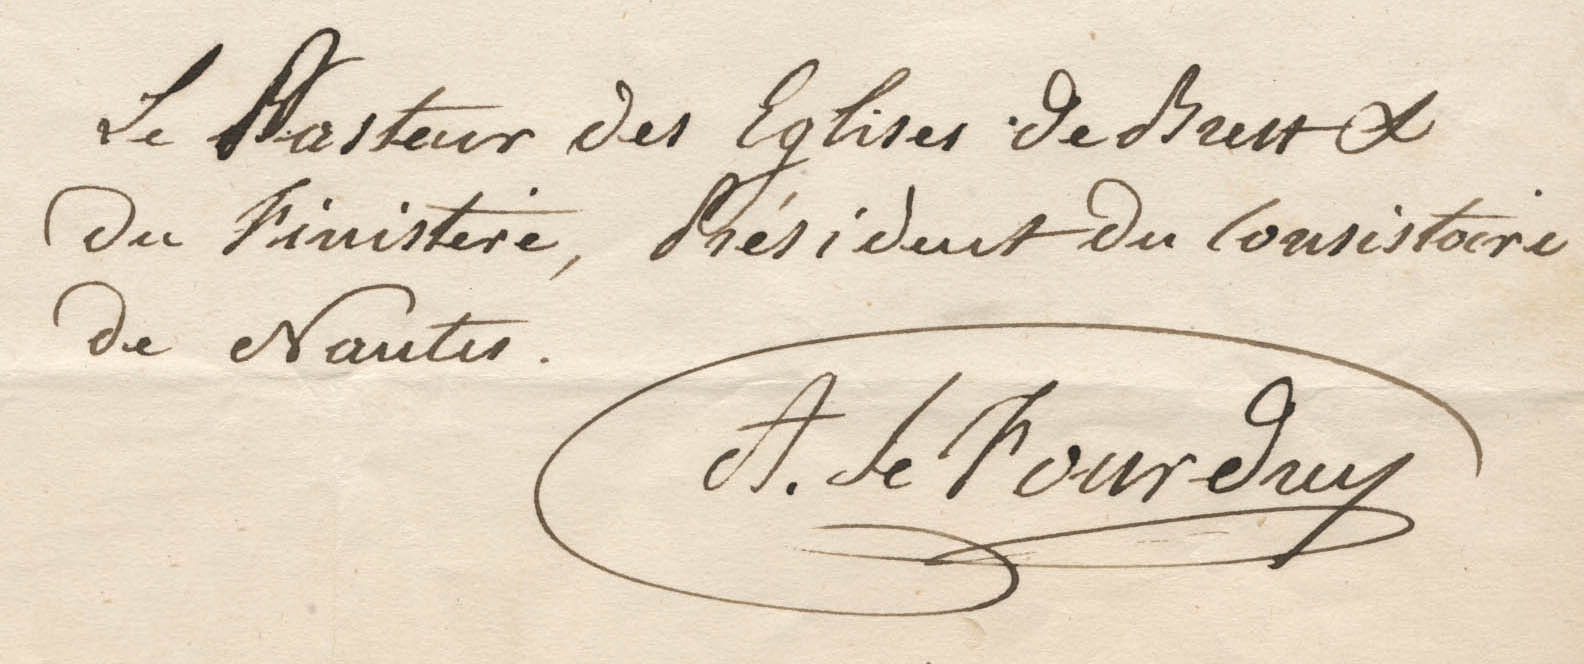 Le Pasteur des Eglises de Brest &
du Finistère, Président du Consistoire
de Nantes.
A. Le Fourdrey